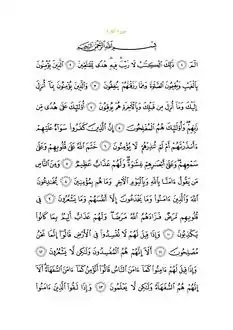 بِسْمِ ٱللَّهِ ٱلرَّحْمَٰنِ ٱلرَّحِيمِ
الٓمٓ ١ ذَٰلِكَ ٱلْكِتَٰبُ لَا رَيْبَ فِيهِ هُدًى لِّلْمُتَّقِينَ ٢ ٱلَّذِينَ يُؤْمِنُونَ
بِٱلْغَيْبِ وَيُقِيمُونَ ٱلصَّلَوٰةَ وَمِمَّا رَزَقْنَٰهُمْ يُنفِقُونَ ٣ وَٱلَّذِينَ يُؤْمِنُونَ بِمَآ أُنزِلَ
إِلَيْكَ وَمَآ أُنزِلَ مِن قَبْلِكَ وَبِٱلْءَاخِرَةِ هُمْ يُوقِنُونَ ٤ أُو۟لَٰٓئِكَ عَلَىٰ هُدًى مِّن
رَّبِّهِمْ وَأُو۟لَٰٓئِكَ هُمُ ٱلْمُفْلِحُونَ ٥ إِنَّ ٱلَّذِينَ كَفَرُوا۟ سَوَآءٌ عَلَيْهِمْ
ءَأَنذَرْتَهُمْ أَمْ لَمْ تُنذِرْهُمْ لَا يُؤْمِنُونَ ٦ خَتَمَ ٱللَّهُ عَلَىٰ قُلُوبِهِمْ وَعَلَىٰ
سَمْعِهِمْ وَعَلَىٰٓ أَبْصَٰرِهِمْ غِشَٰوَةٌ وَلَهُمْ عَذَابٌ عَظِيمٌ ٧ وَمِنَ ٱلنَّاسِ
مَن يَقُولُ ءَامَنَّا بِٱللَّهِ وَبِٱلْيَوْمِ ٱلْءَاخِرِ وَمَا هُم بِمُؤْمِنِينَ ٨ يُخَٰدِعُونَ
ٱللَّهَ وَٱلَّذِينَ ءَامَنُوا۟ وَمَا يَخْدَعُونَ إِلَّآ أَنفُسَهُمْ وَمَا يَشْعُرُونَ ٩ فِى
قُلُوبِهِم مَّرَضٌ فَزَادَهُمُ ٱللَّهُ مَرَضًا وَلَهُمْ عَذَابٌ أَلِيمٌۢ بِمَا كَانُوا۟
يَكْذِبُونَ ١٠ وَإِذَا قِيلَ لَهُمْ لَا تُفْسِدُوا۟ فِى ٱلْأَرْضِ قَالُوٓا۟ إِنَّمَا نَحْنُ
مُصْلِحُونَ ١١ أَلَآ إِنَّهُمْ هُمُ ٱلْمُفْسِدُونَ وَلَٰكِن لَّا يَشْعُرُونَ ١٢
وَإِذَا قِيلَ لَهُمْ ءَامِنُوا۟ كَمَآ ءَامَنَ ٱلنَّاسُ قَالُوٓا۟ أَنُؤْمِنُ كَمَآ ءَامَنَ ٱلسُّفَهَآءُ أَلَآ
إِنَّهُمْ هُمُ ٱلسُّفَهَآءُ وَلَٰكِن لَّا يَعْلَمُونَ ١٣ وَإِذَا لَقُوا۟ ٱلَّذِينَ ءَامَنُوا۟